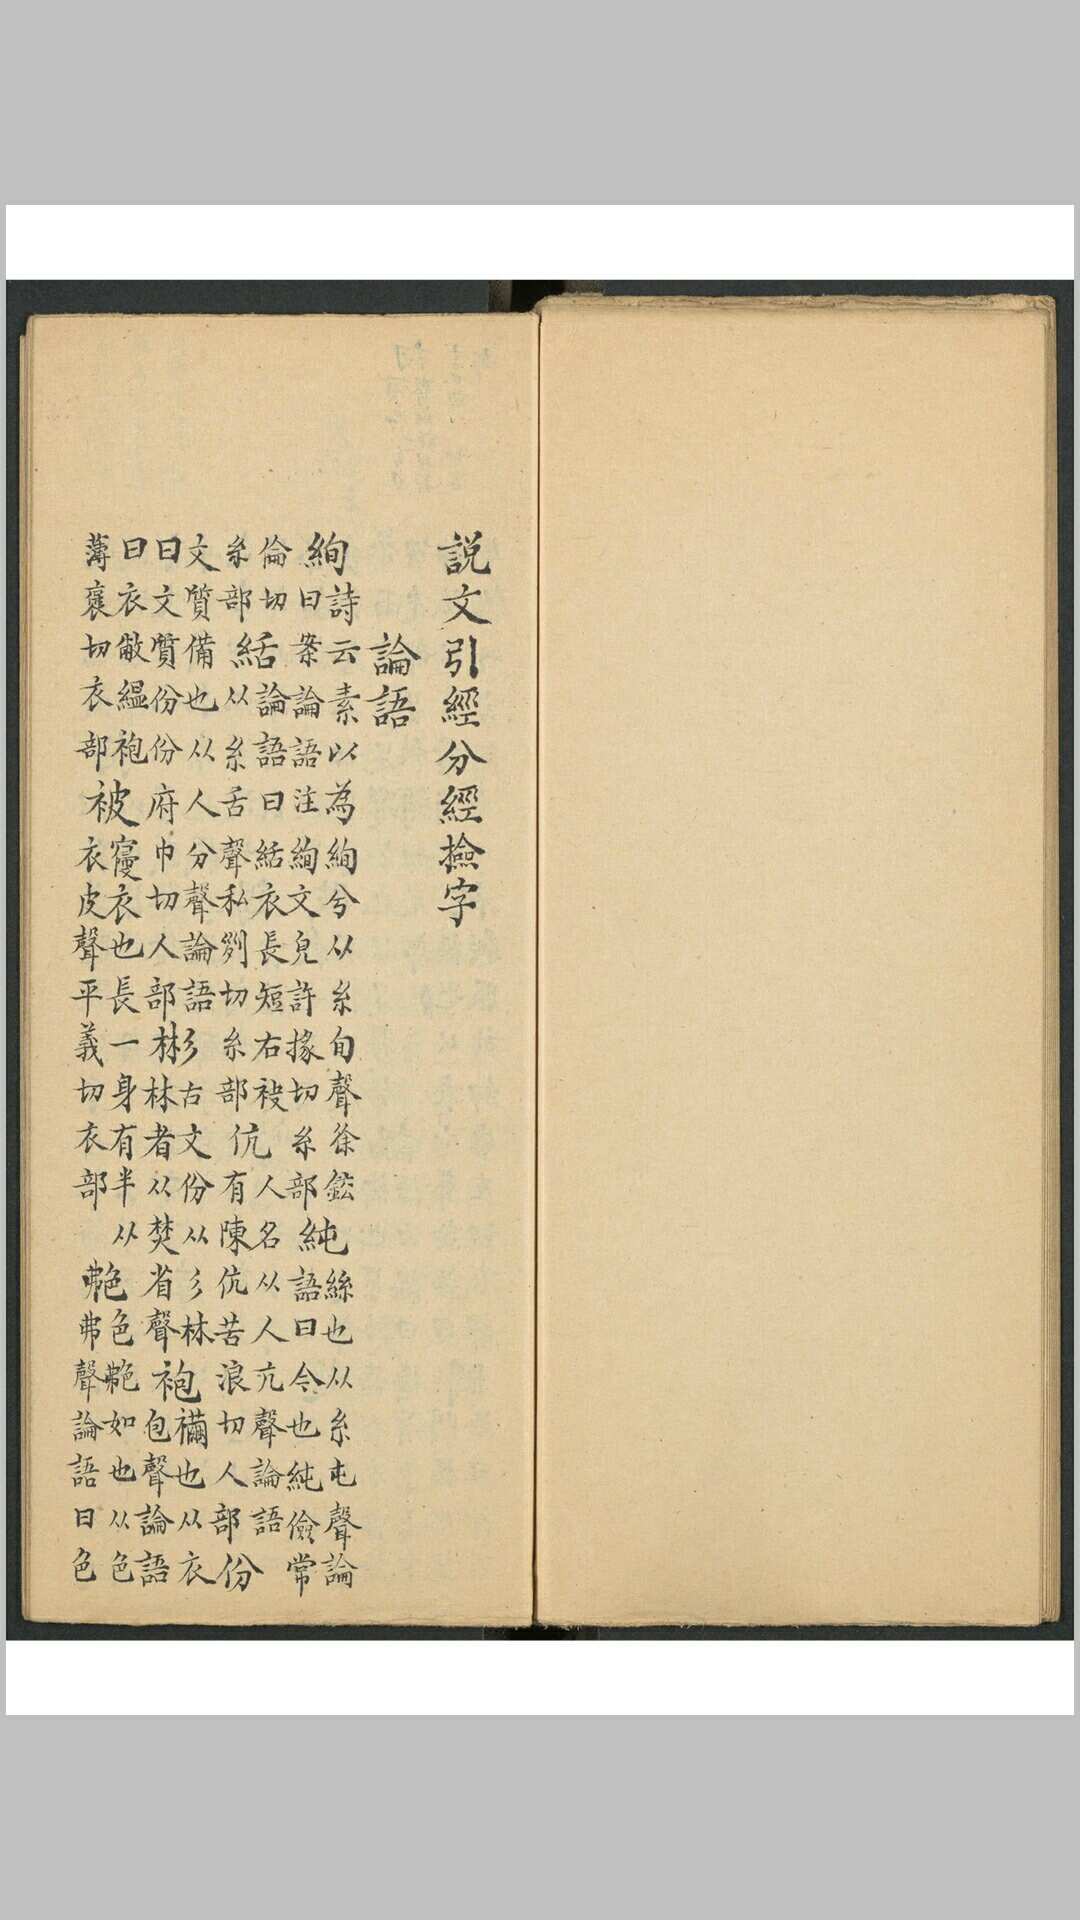 說文引經分經撿字
論語
絢詩云素以為絢兮从糸旬聲徐鉉曰案論語注絢文皃許掾切糸部純絲也从糸屯聲論語曰今也純儉常
倫切糸部絬論語曰絬衣長短右袂从糸舌聲私列切糸部伉人名从人亢聲論語有陳伉苦浪切人部份
文質備也从人分聲論語曰文質份份府巾切人部彬古文份从彡林林者从焚省聲袍襺也从衣包聲論語
曰衣敝縕袍薄襃切衣部被寑衣也長一身有半从衣皮聲平義切衣部艴色艴如也从色弗聲論語曰色